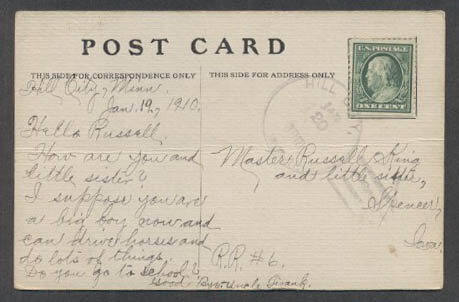 POST CARD
THIS SIDE FOR CORRESPONDENCE ONLY
THIS SIDE FOR ADDRESS ONLY
U.S. POSTAGE
ONE CENT
HILL
JAN
20
Hill City, Minn.
Jan. 19, 1910.
Hello Russell.
How are you and
little sister?
I suppose you are
a big boy now and
can drive horses and
do lots of things.
Do you go to school?
Uncle Frank.
Master Russell King
and little sister,
Spencer,
Iowa.
R.R. #6.